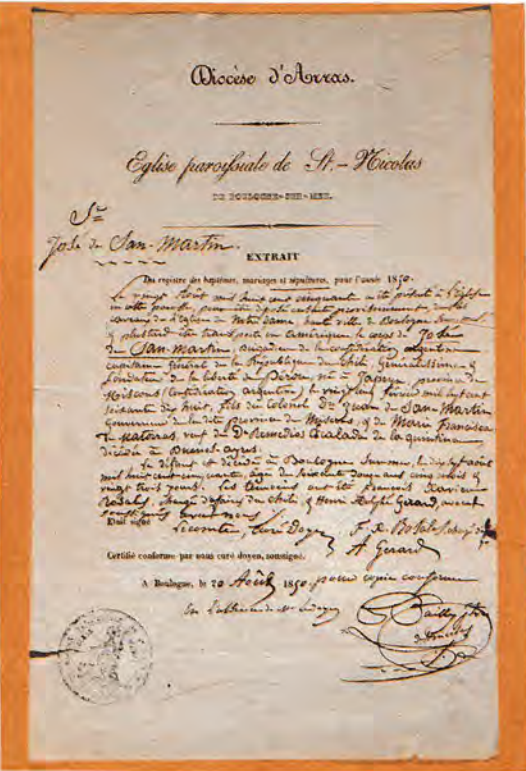 Diocèse d'Arras.
Eglise paroissiale de St.-Nicolas
DE BOULOGNE-SUR-MER.
Sr
José de San-Martin.
EXTRAIT
Du registre des baptêmes, mariages et sépultures, pour l'année 1850.
Le vingt Août mil huit cent cinquante a été présenté à l'église
en cette paroisse, pour être déposé ensuite provisoirement, dans les
caveaux de l'église de Notre Dame, haute ville de Boulogne
plus tard être transporté en amérique, le corps de José
de San-Martin, brigadier de la confédération argentine
capitaine général de la République du Chili, généralissime &
fondateur de la liberté du Pérou né à Yapeyu, province de
Missions (confédération argentine) le vingt cinq février mil sept cent
soixante dix huit, fils du colonel Dn Juan de San-Martin
Gouverneur de la dite Province de Missions, & de Maria Francisca
de Matorras, veuf de Da Remedios Escalada de la quintina
décédée à Buenos-ayres.
Le défunt est décédé à Boulogne sur mer, le dix sept août
mil huit cent cinquante, âgé de soixante douze ans cinq mois &
vingt trois jours. Les témoins ont été François Xavier
Rosales, chargé d'affaires du Chili & Henri Adolphe Gérard, avocat
soussignés avec nous
Lecomte, Curé Doyen F. X. Rosales
A Gerard
Certifié conforme par nous curé doyen, soussigné.
A Boulogne, le 20 Août 1850 pour copie conforme
En l'absence de Mr le doyen
Bailly